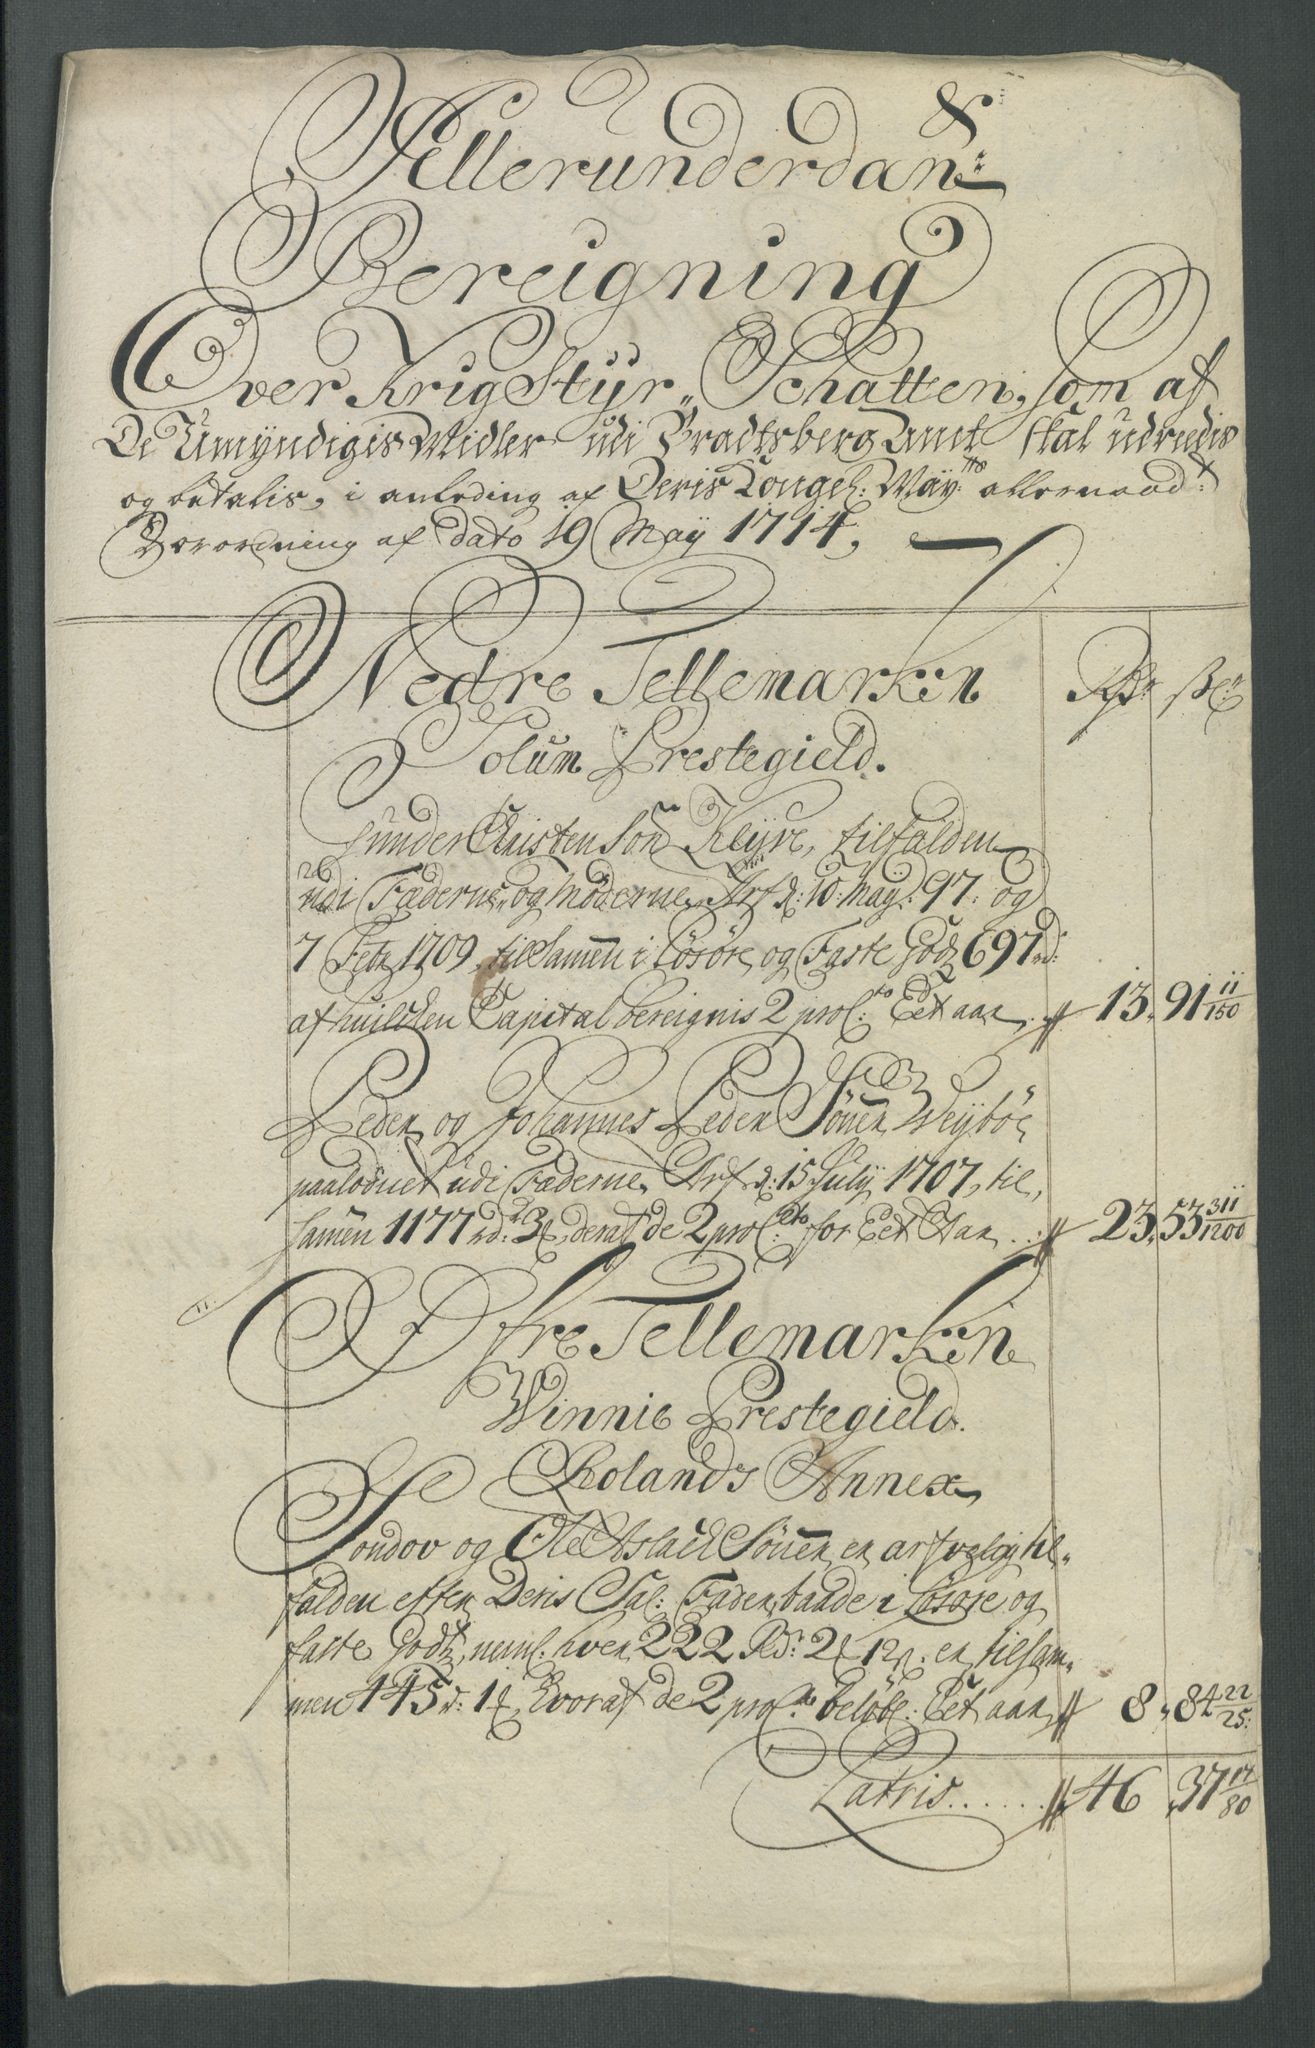 Allerunderdan:
Bereigning
Over KrigStyr Schatten, som af
De Umyndigis Midler udi Bradtsberg Amt skal udredis
og betalis, i anleding af Deris Kongel: May:tts allernaad:
Forordning af dato 19 May 1714,
Nedre Tellemarken Rdr ſz:
Solum Prestegield.
Gunder Christenson Klyve, tilfalden
udi Fæderne og Møderne Arf d: 10 May: 97. og
7 Febr 1709, tilsamen i Løsøre og Faste Godtz 697 rd:
af huilcken Capital bereignis 2 proC:to Eet aar 13, 91 11/150
Peder og Johannes Peder Søner Weybøe
paalodnet udi Fæderne Arf d: 15 July 1707, til,
samen 1177 rd: 3 deraf de 2 proC:to for Eet Aar .. 23, 53 311/1200
Øfre Tellemarken
Winnie Prestegield.
Rolands Annex
Sondov og Ole Aslach Sönner er arfvelig til,,
falden efter Deris Sal: Fader, baade i Løsøre og
faste Godtz, neml: hver 222 Rd: 2 12 er tilsam,,
men 445 r: 1 hvoraf de 2 proC:to beløbr: Eet aar 8, 84 22/25:
Latris...... 46, 37 17/80